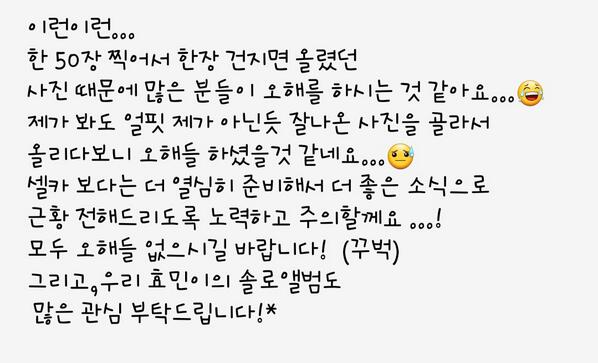 이런이런...
한 50장 찍어서 한장 건지면 올렸던
사진 때문에 많은 분들이 오해를 하시는 것 같아요...😂
제가 봐도 얼핏 제가 아닌듯 잘나온 사진을 골라서
올리다보니 오해들 하셨을것 같네요...😓
셀카 보다는 더 열심히 준비해서 더 좋은 소식으로
근황 전해드리도록 노력하고 주의할께요 ...!
모두 오해들 없으시길 바랍니다!  (꾸벅)
그리고,우리 효민이의 솔로앨범도
많은 관심 부탁드립니다!*